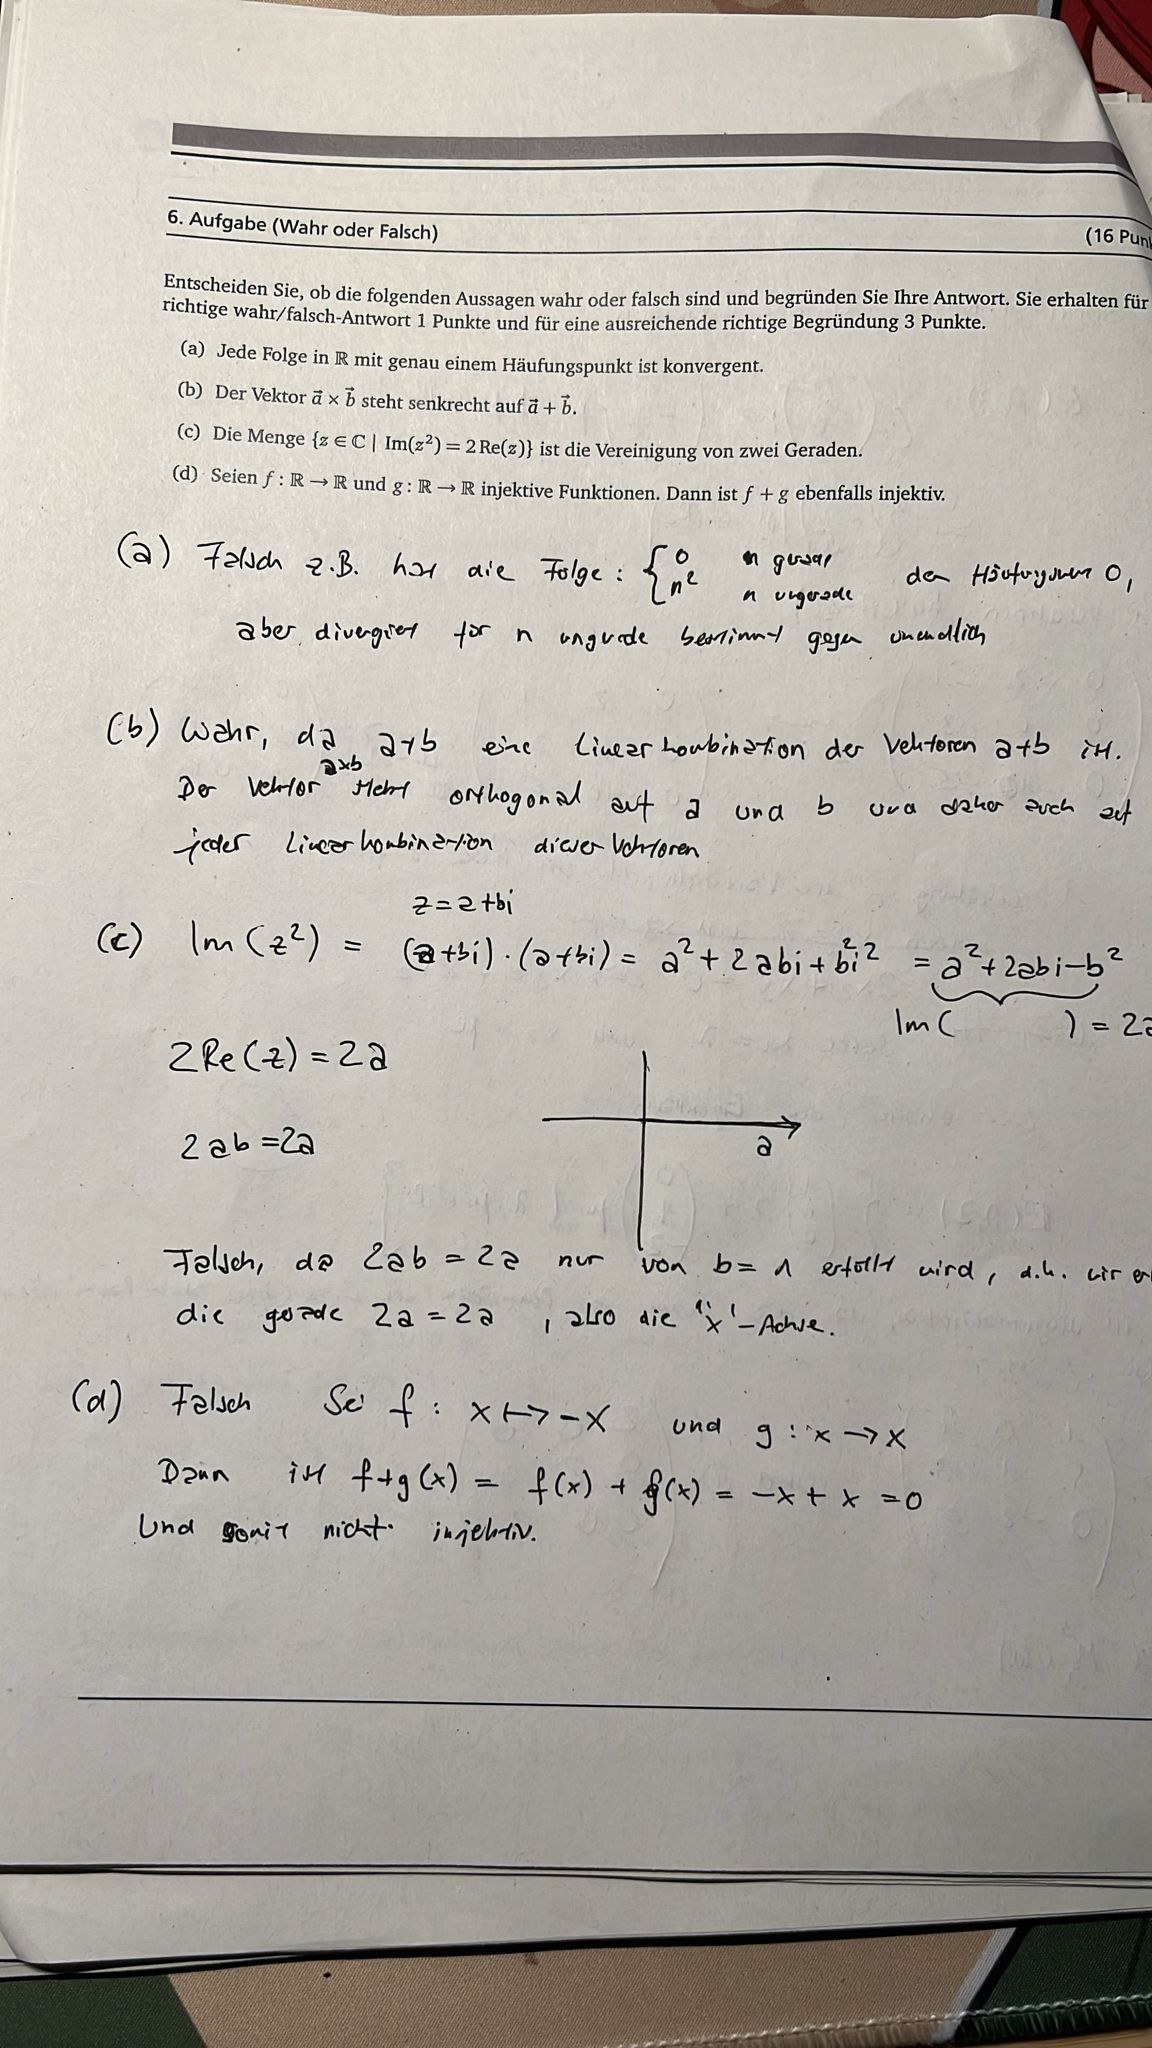 6. Aufgabe (Wahr oder Falsch)
(16 Punk
Entscheiden Sie, ob die folgenden Aussagen wahr oder falsch sind und begründen Sie Ihre Antwort. Sie erhalten für
richtige wahr/falsch-Antwort 1 Punkte und für eine ausreichende richtige Begründung 3 Punkte.
(a) Jede Folge in ℝ mit genau einem Häufungspunkt ist konvergent.
(b) Der Vektor a⃗ × b⃗ steht senkrecht auf a⃗ + b⃗.
(c) Die Menge {z ∈ ℂ | Im(z²) = 2 Re(z)} ist die Vereinigung von zwei Geraden.
(d) Seien f : ℝ → ℝ und g : ℝ → ℝ injektive Funktionen. Dann ist f + g ebenfalls injektiv.
(a) Falsch z.B. hat die Folge : { 0 n gerade
n² n ungerade den 0,
aber divergiert für n ungrade bestimmt gegen unendlich
(b) Wahr, da a+b eine Linearkombination der Vektoren a+b ist.
Der Vektor a×b steht orthogonal auf a und b und daher auch auf
jeder Linearkombination dieser Vektoren
z = a+bi
(c) Im(z²) = (a+bi)·(a+bi) = a² + 2abi + b²i² = a²+2abi−b²
Im( ) = 2a
2Re(z) = 2a
2ab = 2a
a
Falsch, da 2ab = 2a nur von b = 1 erfüllt wird, d.h. wir er
die gerade 2a = 2a, also die "x"-Achse.
(d) Falsch Sei f : x ↦ −x und g : x → x
Dann ist f+g(x) = f(x) + g(x) = −x + x = 0
Und somit nicht injektiv.